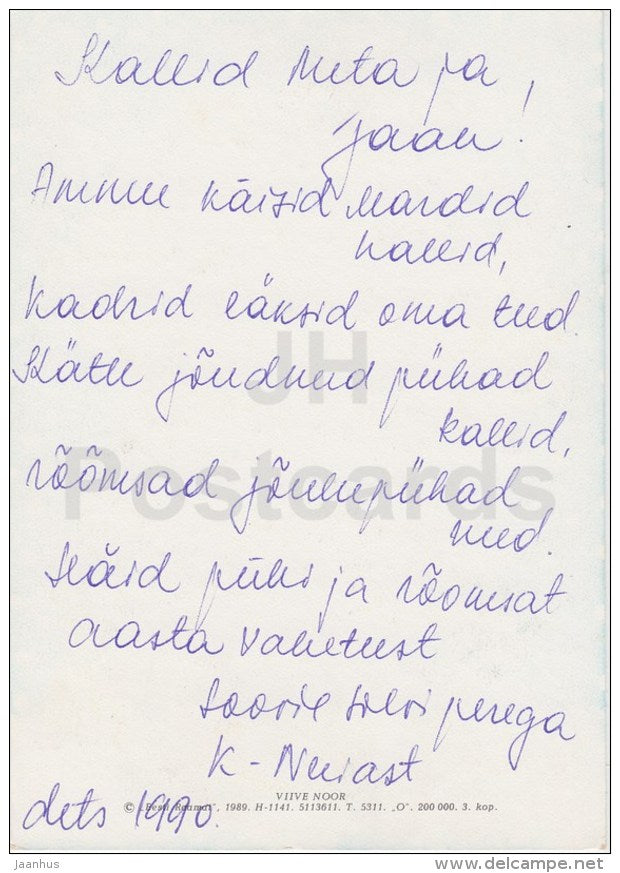 Kallid Meta ja
Jaan!
Ammu käisid Mardid
hallid,
Kadrid läksid oma teed.
Kätte jõudnud pühad
kallid,
rõõmsad jõulupühad
need.
Häid pühi ja rõõmsat
aasta vahetust
Soovib Silvi perega
K-Nuiast
dets 1990.
VIIVE NOOR
© „Eesti Raamat“, 1989. H-1141. 5113611. T. 5311. „O“. 200 000. 3. kop.
JH
Postcards
jaanhus
www.delcampe.net